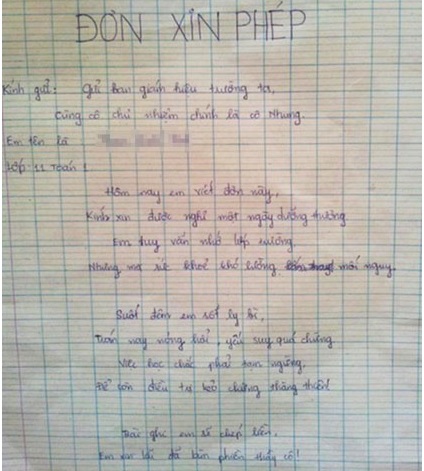 ĐƠN XIN PHÉP
Kính gửi: Gửi ban giám hiệu trường ta,
Cùng cô chủ nhiệm chính là cô Nhung.
Em tên là
Lớp: 11 Toán 1
Hôm nay em viết đơn này,
Kính xin được nghỉ một ngày dưỡng thương
Em tuy vấn nhớ lớp trường
Nhưng mà sức khoẻ khó lường, mới nguy.
Suốt đêm em sốt ly bì,
Trán nay nóng hổi, yếu suy quá chừng
Việc học chắc phải tạm ngừng,
Để còn điều trị kẻo chừng thăng thiên!
Bài ghi em sẽ chép liền,
Em xin lỗi đã làm phiền thầy cô!